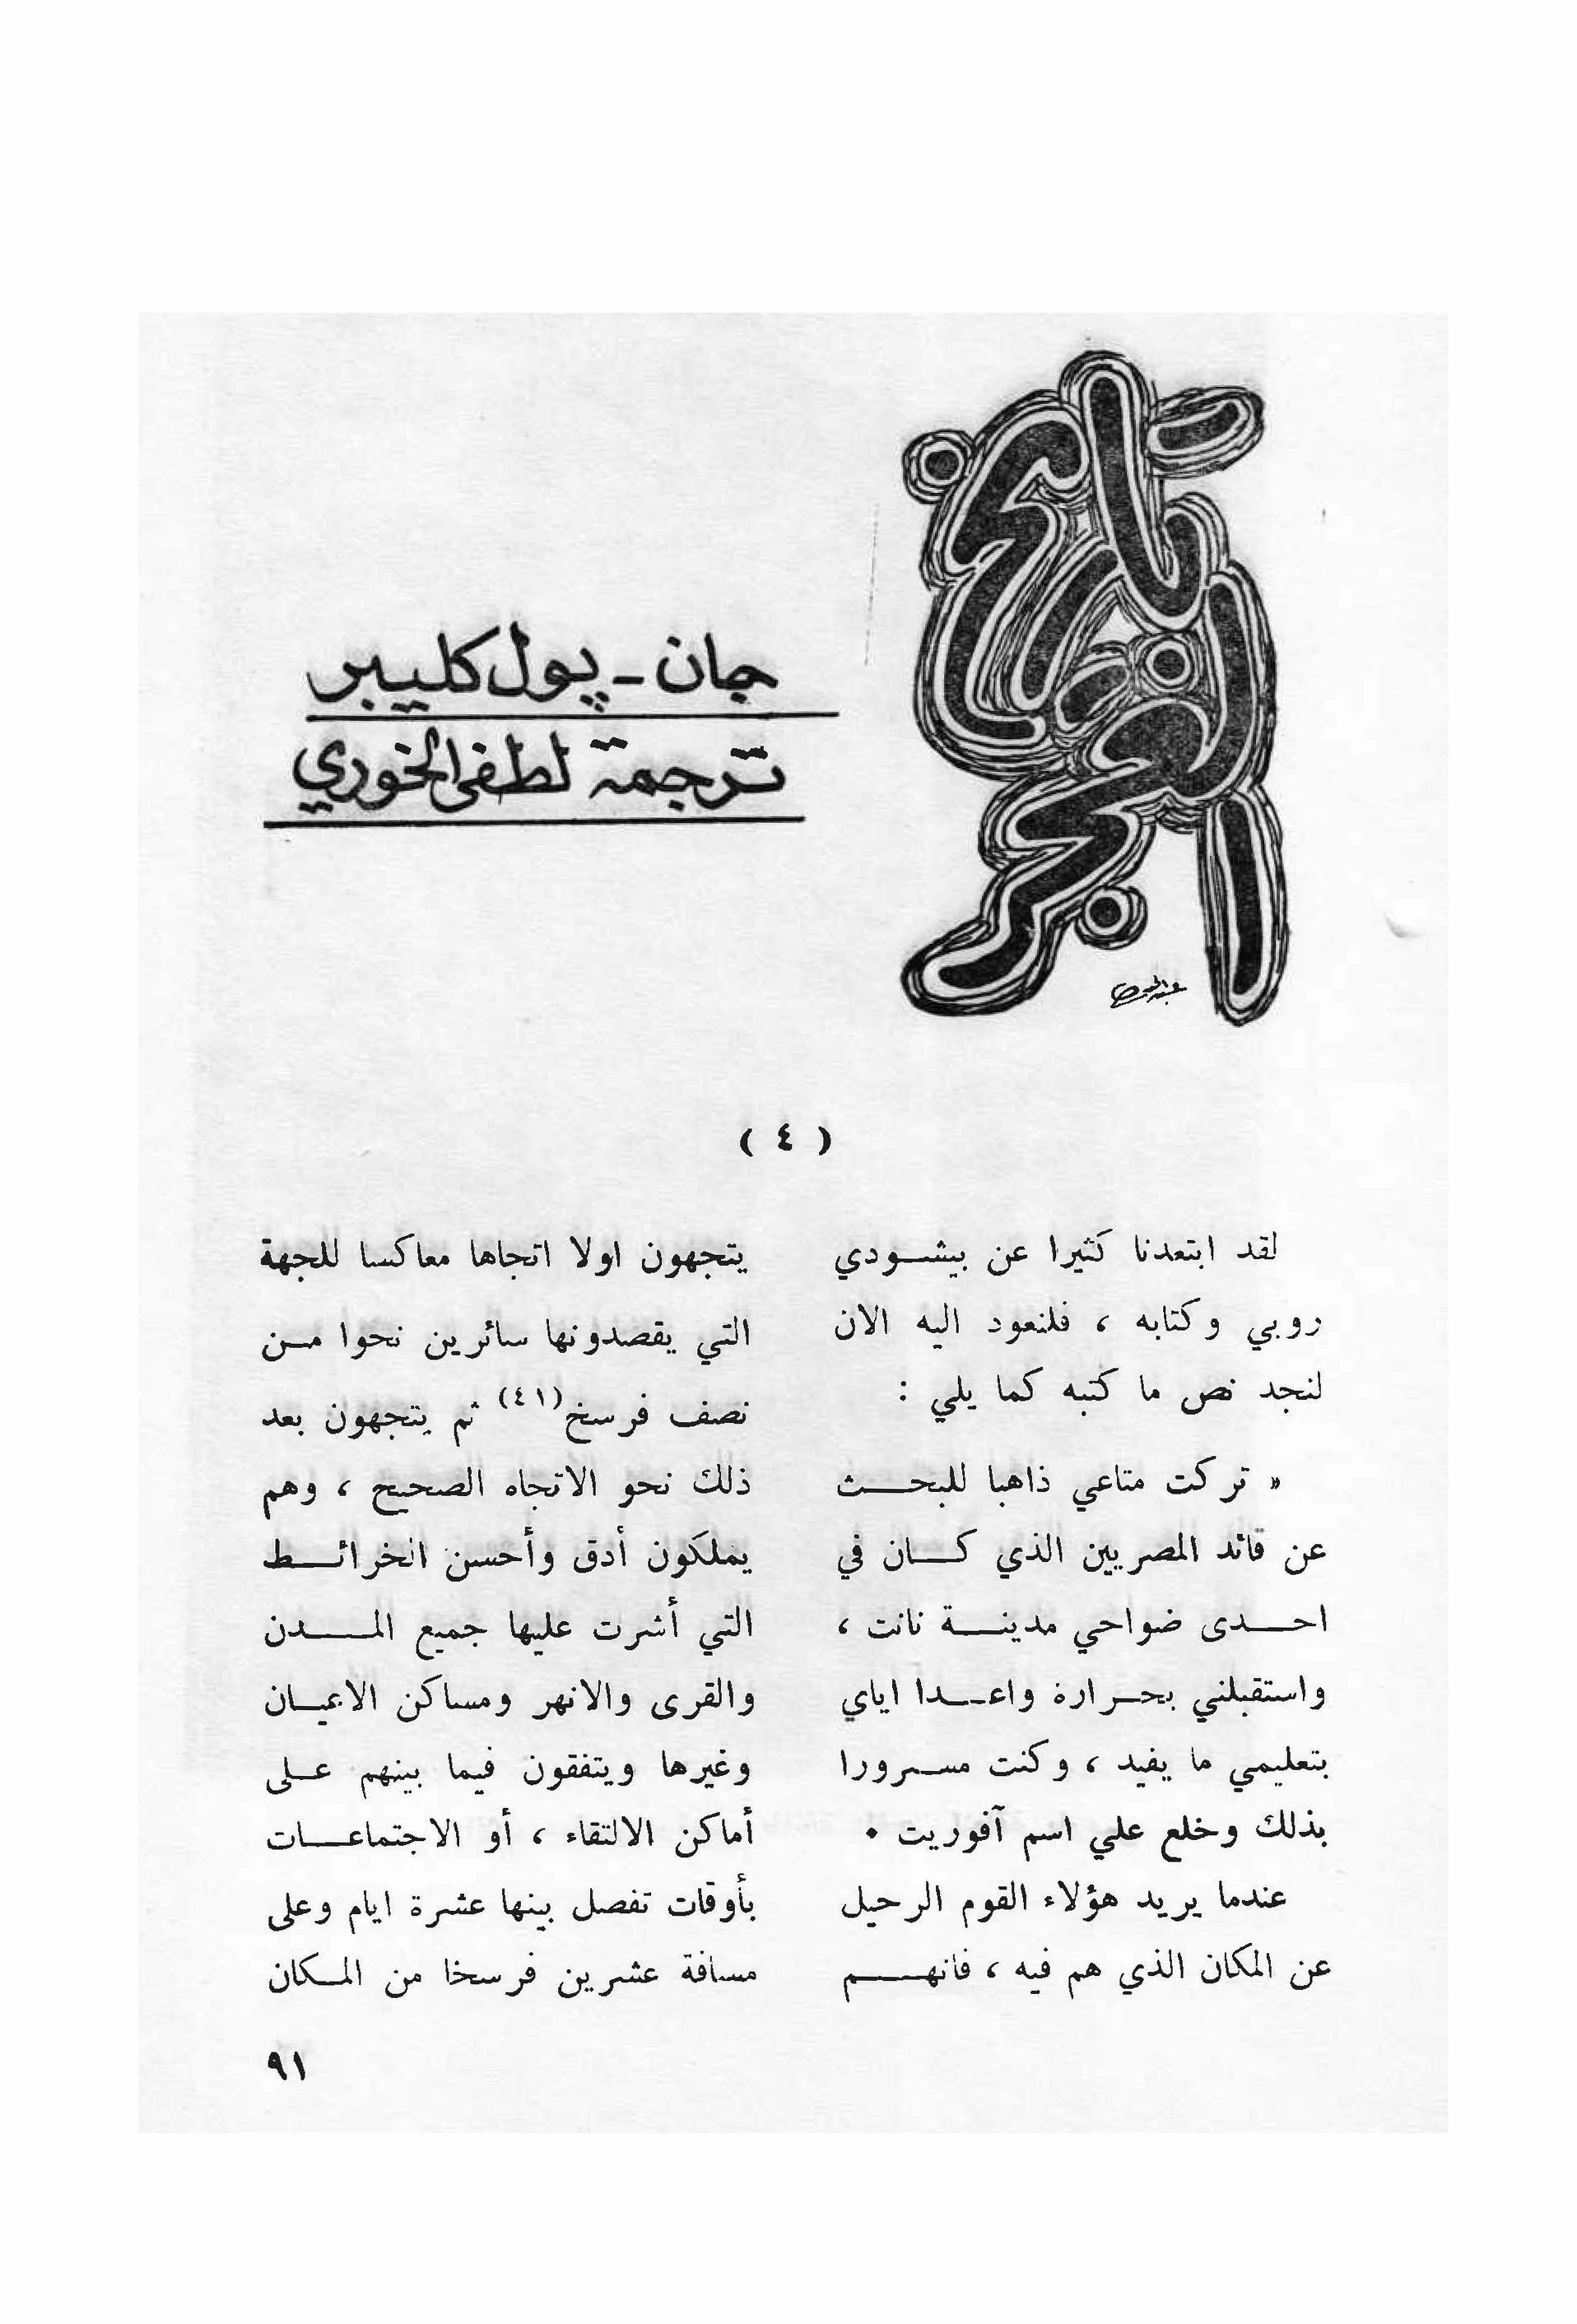 تاريخ
الغجر
جان - پول كليبر
ترجمة لطفي الخوري
( ٤ )
لقد ابتعدنا كثيرا عن بيشــودي
روبي وكتابه ، فلنعود اليه الان
لنجد نص ما كتبه كما يلي :
« تركت متاعي ذاهبا للبحـــث
عن قائد المصريين الذي كــان في
احــدى ضواحي مدينــة نانت ،
واستقبلني بحـرارة واعــدا اياي
بتعليمي ما يفيد ، وكنت مسـرورا
بذلك وخلع علي اسم آفوريت .
عندما يريد هؤلاء القوم الرحيل
عن المكان الذي هم فيه ، فانهــم
يتجهون اولا اتجاها معاكسا للجهة
التي يقصدونها سائرين نحوا مـن
نصف فرسخ(٤١) ثم يتجهون بعد
ذلك نحو الاتجاه الصحيح ، وهم
يملكون أدق وأحسن الخرائــط
التي أشرت عليها جميع المــدن
والقرى والانهر ومساكن الاعيـان
وغيرها ويتفقون فيما بينهم عـلى
أماكن الالتقاء ، أو الاجتماعــات
بأوقات تفصل بينها عشرة ايام وعلى
مسافة عشرين فرسخا من المـكان
٩١